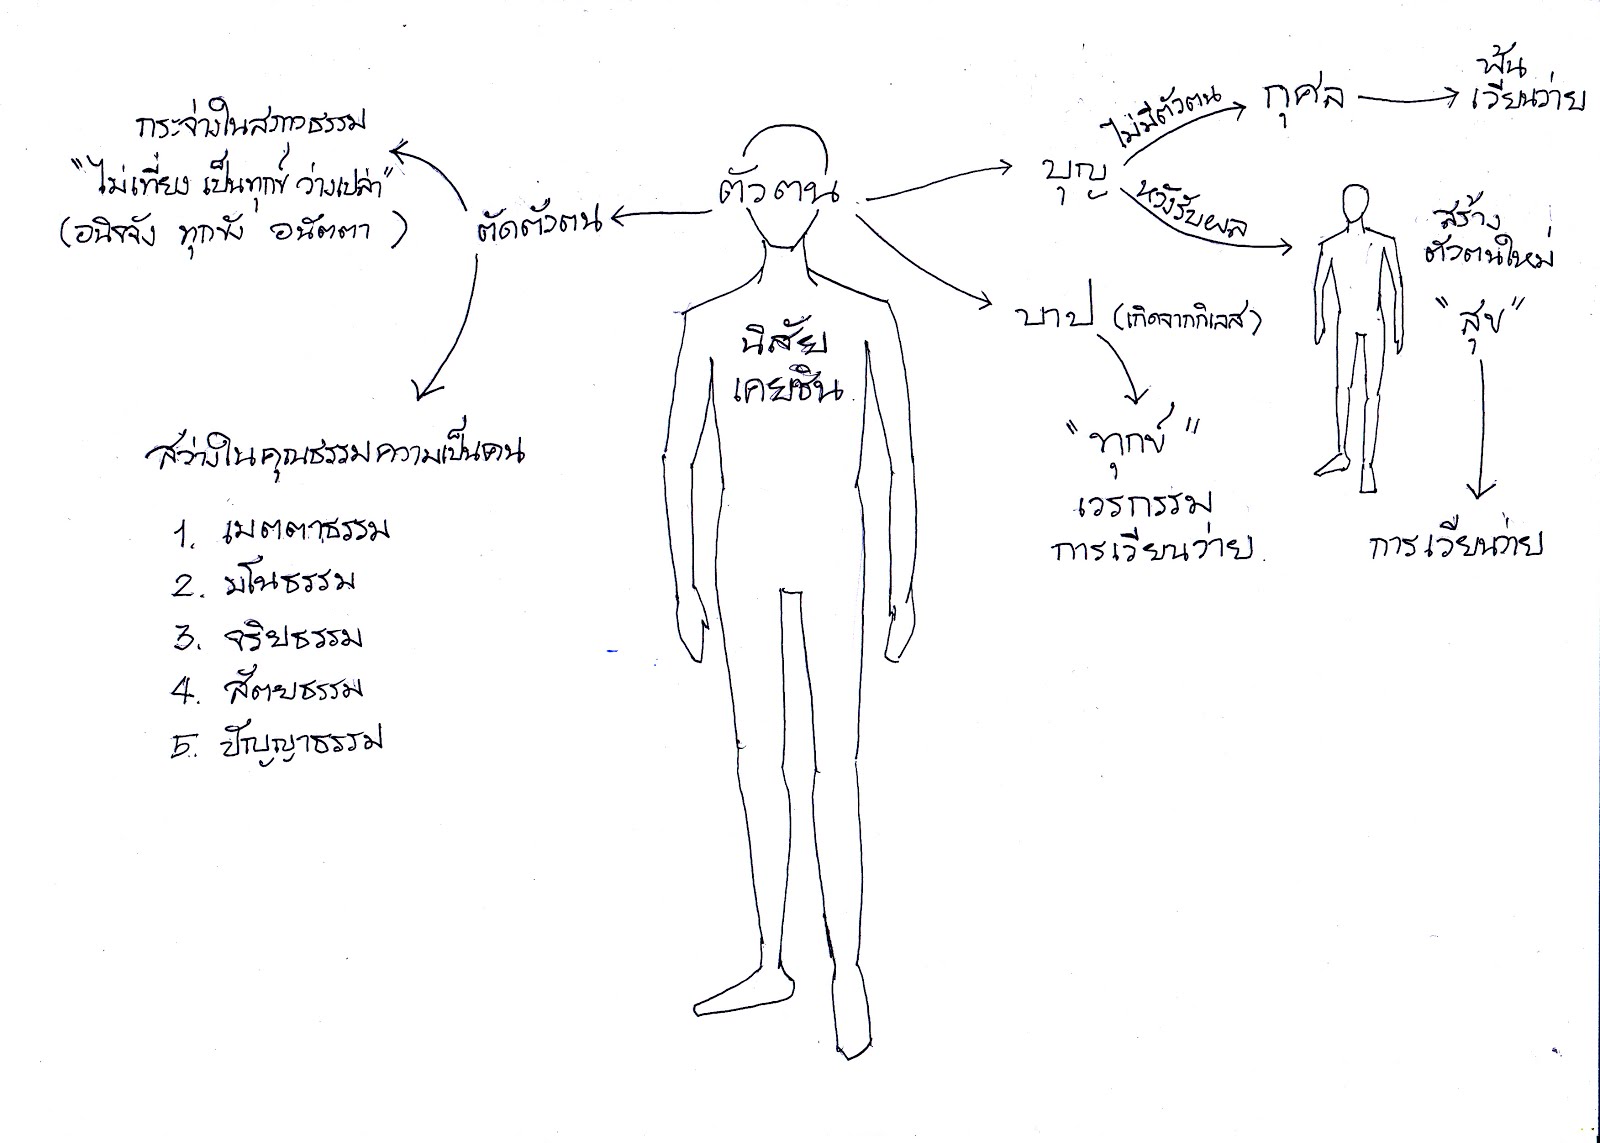 กระจ่างในสภาวธรรม
"ไม่เที่ยง เป็นทุกข์ ว่างเปล่า"
(อนิจจัง ทุกขัง อนัตตา)
ตัดตัวตน
สว่างในคุณธรรมความเป็นคน
1. เมตตาธรรม
2. มโนธรรม
3. จริยธรรม
4. สัตยธรรม
5. ปัญญาธรรม
ตัวตน
นิสัย
เคยชิน
บุญ
ไม่มีตัวตน
กุศล
พ้น
เวียนว่าย
หวังรับผล
สร้าง
ตัวตนใหม่
"สุข"
การเวียนว่าย
บาป (เกิดจากกิเลส)
"ทุกข์"
เวรกรรม
การเวียนว่าย.